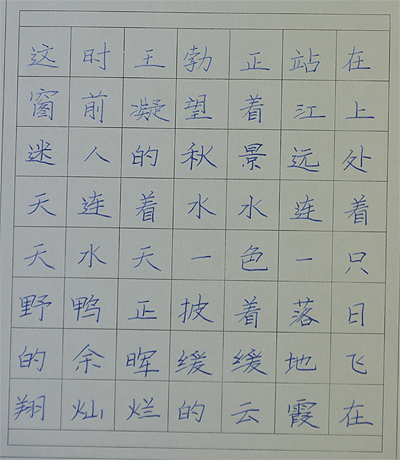 这时王勃正站在
窗前凝望着江上
迷人的秋景远处
天连着水水连着
天水天一色一只
野鸭正披着落日
的余晖缓缓地飞
翔灿烂的云霞在